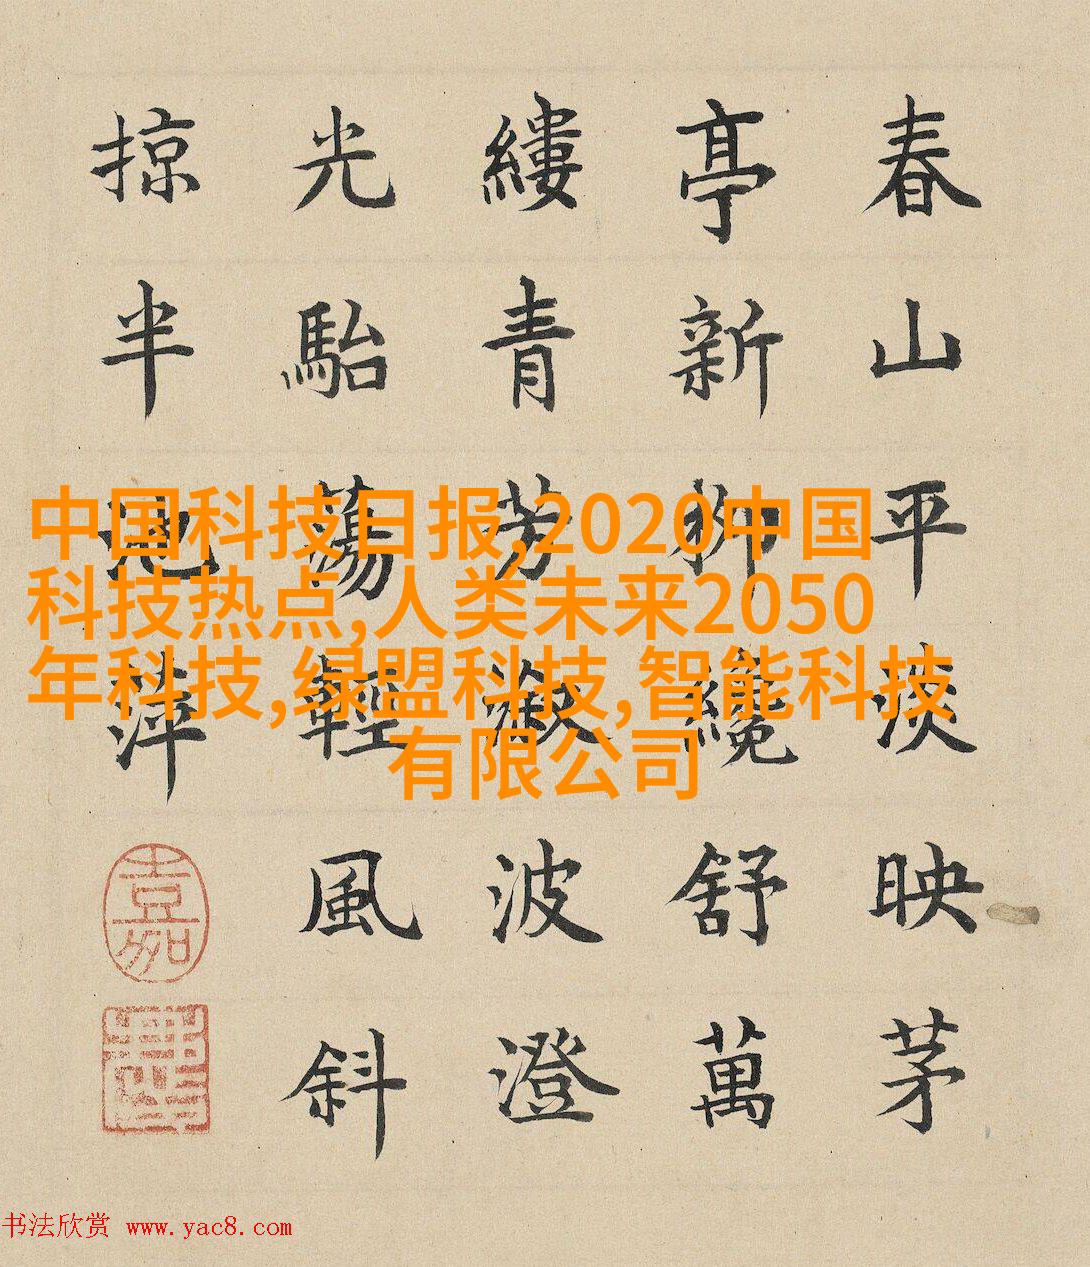 春山平淡映茅
亭新柳纔舒萬
縷青芳漵波澄
光駘蕩輕風斜
掠半池萍
嘉
中国科技日报,2020中国
科技热点,人类未来2050
年科技,绿盟科技,智能科技
有限公司
书法欣赏 www.yac8.com